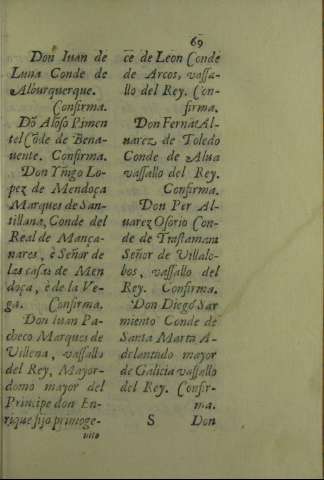 69
Don Iuan de
Luna Conde de
Alburquerque.
Confirma.
Dõ Alõso Pimen
tel Cõde de Bena-
uente. Confirma.
Don Yñigo Lo-
pez de Mendoça
Marques de San-
tillana, Conde del
Real de Mança-
nares, è Señor de
las casas de Men
doça, è de la Ve-
ga. Confirma.
Don Iuan Pa-
checo Marques de
Villena, vassallo
del Rey, Mayor-
domo mayor del
Principe don En-
rique hijo primoge-
nito
ce de Leon Conde
de Arcos, vassa-
llo del Rey. Con-
firma.
Don Fernãt Al-
uarez de Toledo
Conde de Alua
vassallo del Rey.
Confirma.
Don Per Al-
uarez Osorio Con-
de de Trastamara
Señor de Villalo-
bos, vassallo del
Rey. Confirma.
Don Diego Sar
miento Conde de
Santa Marta A-
delantado mayor
de Galicia vassallo
del Rey. Confir-
ma.
S Don